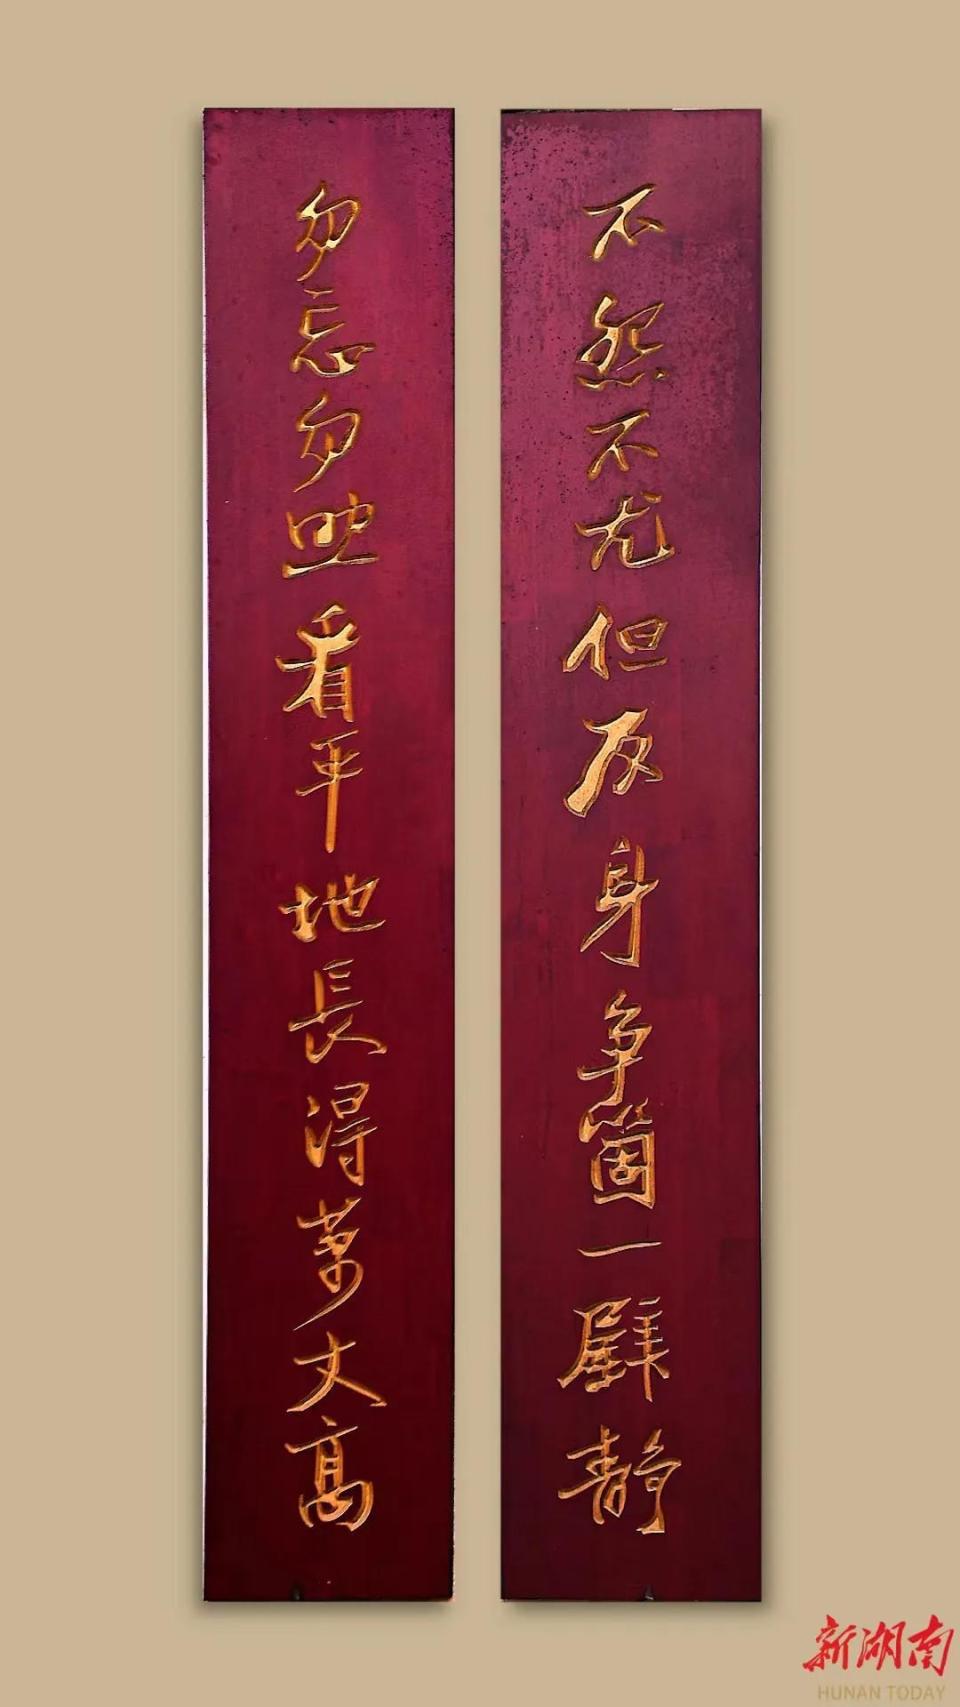 不怨不尤但反身争箇一壁静
勿忘勿助看平地長得萬丈高
新湖南
HUNAN TODAY